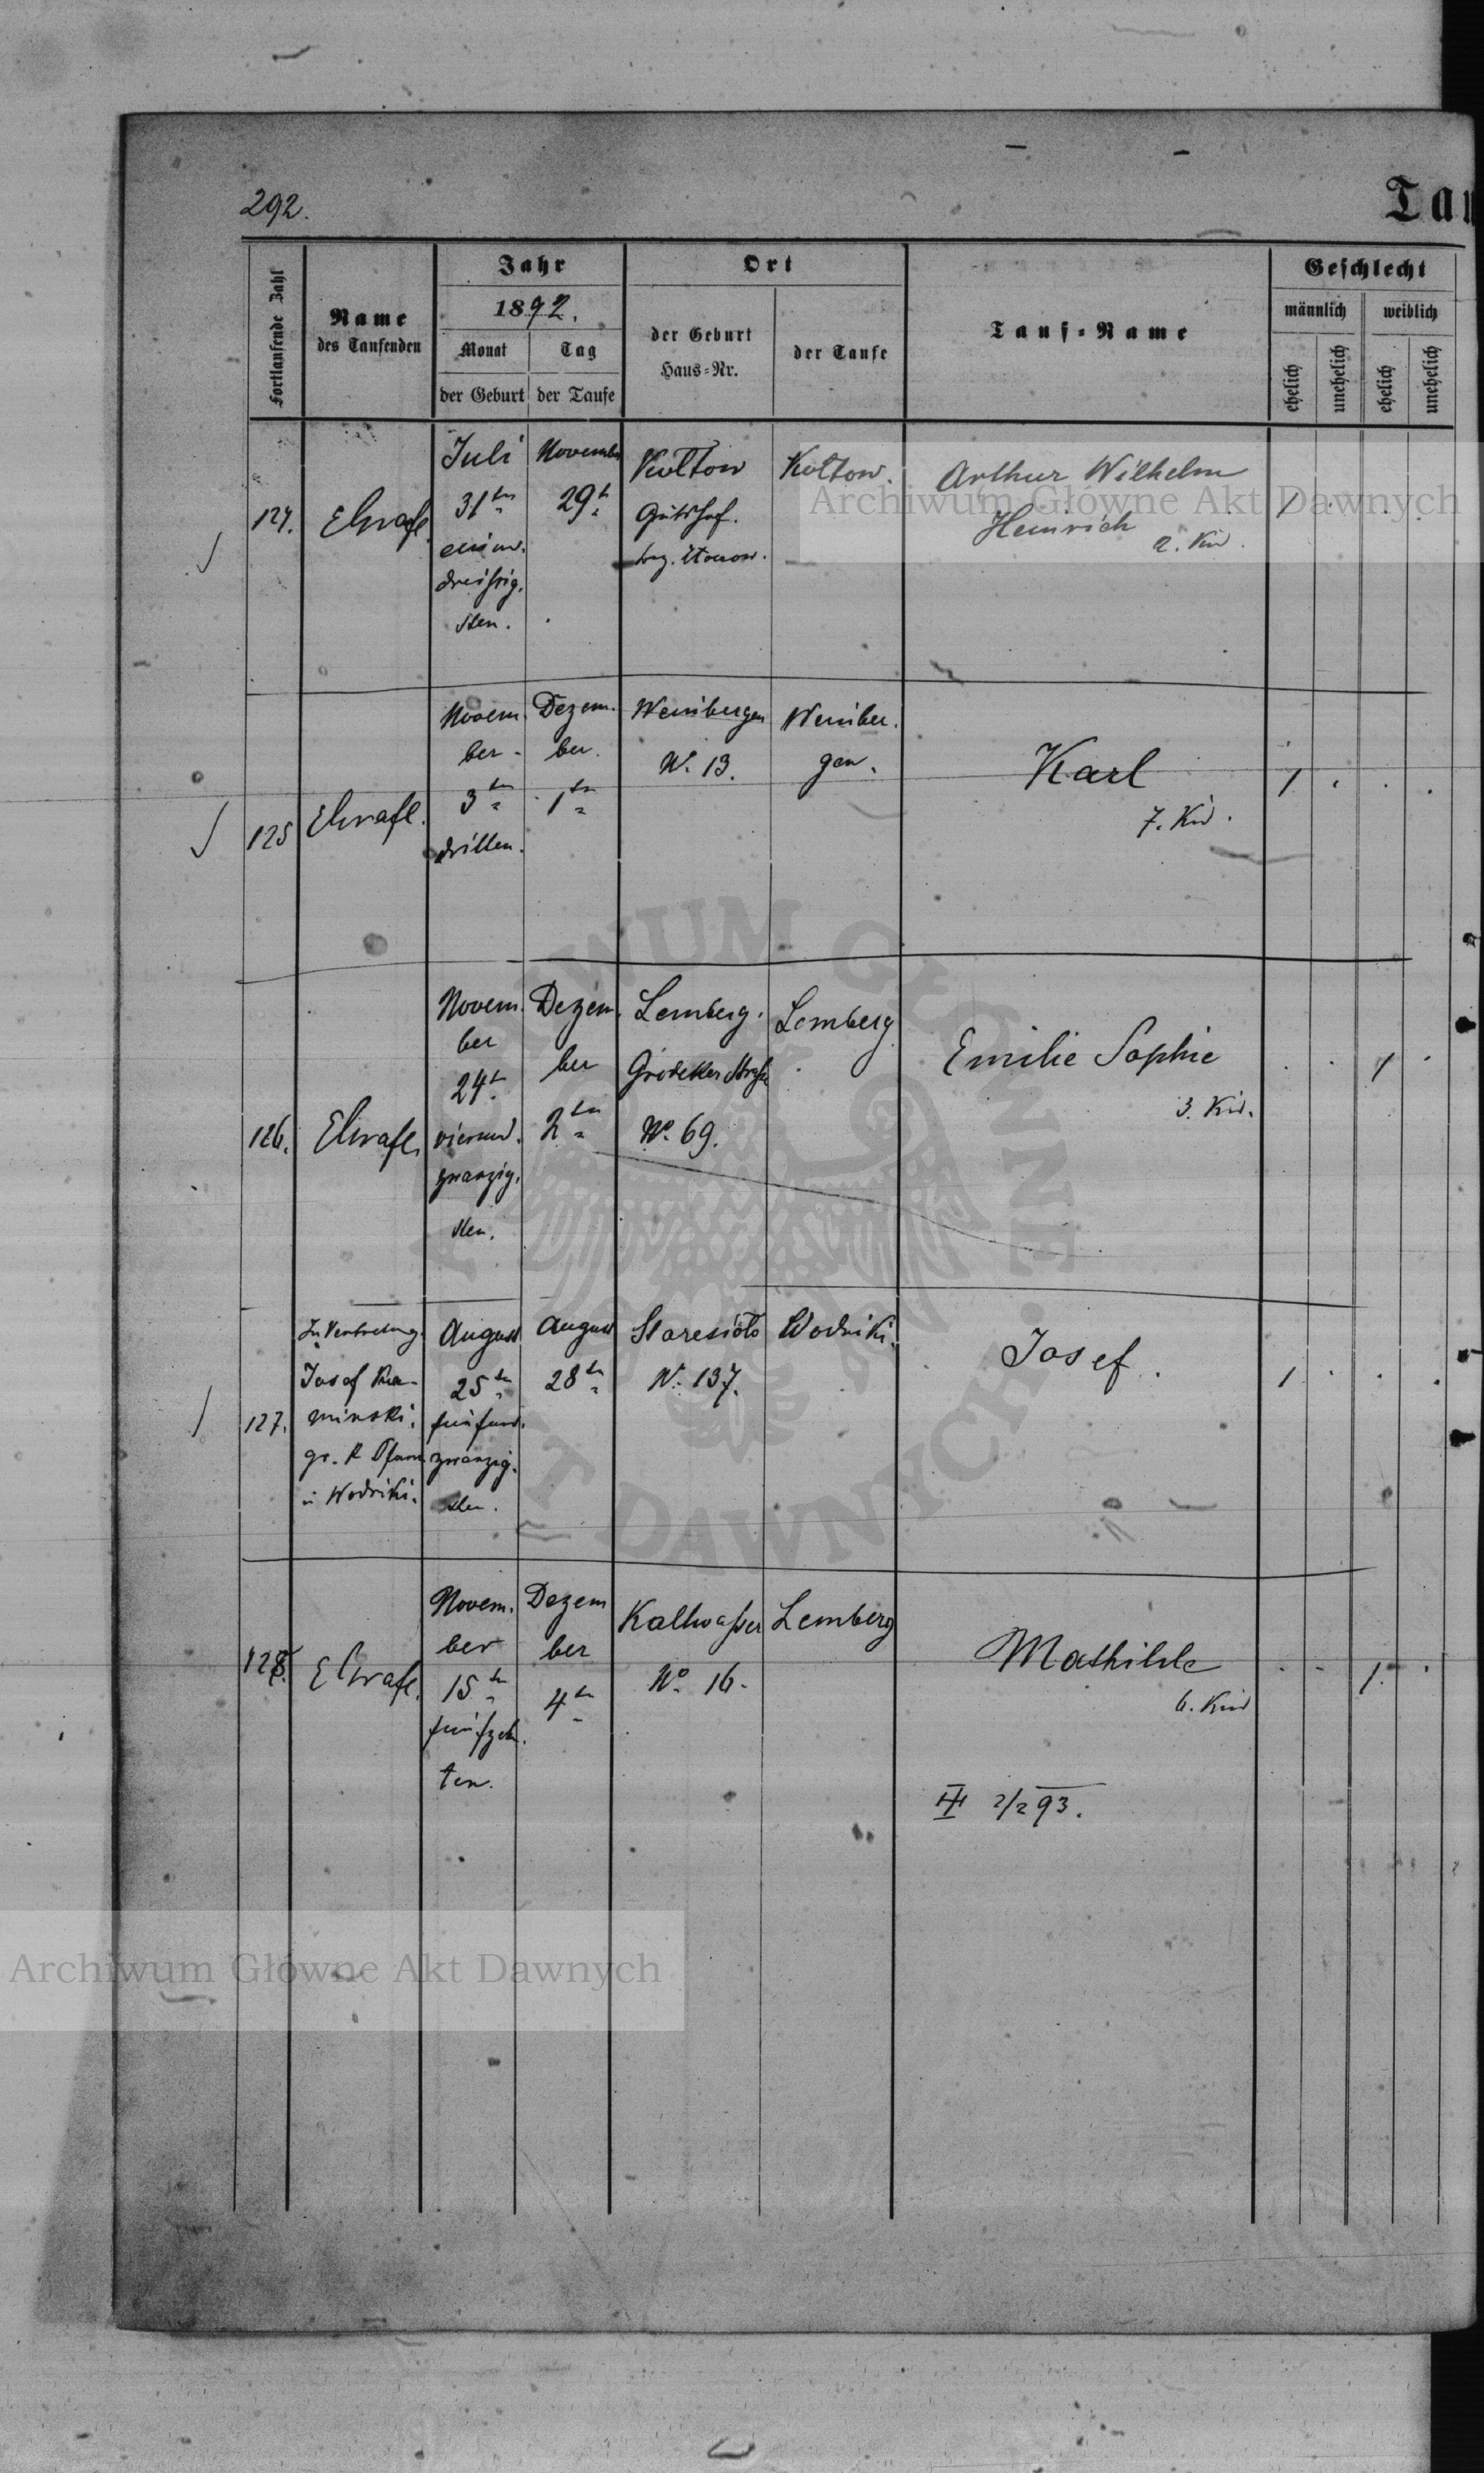 292.
Tau
Fortlaufende Zahl
Name
des Taufenden
Jahr
1892.
Monat
Tag
der Geburt
der Taufe
Ort
der Geburt
Haus=Nr.
der Taufe
Tauf=Name
Geschlecht
männlich
weiblich
ehelich
unehelich
ehelich
unehelich
124.
Juli
31ten
einund.
dreißig.
sten.
November
29t
Koltow
Gutshof.
Koltow.
Arthur Wilhelm
Heinrich
2. Kind
1
125
Novem.
ber
3ten
dritten.
Dezem.
ber.
1ten
Weinbergen
N. 13.
Weinber.
gen.
Karl
7. Kind.
1
126.
Novem.
ber
24t
vierund.
zwanzig.
sten.
Dezem.
ber
2ten
Lemberg.
Grodeker Straße
No. 69.
Lemberg
Emilie Sophie
3. Kind.
1
127.
In Vertretung
Josef Ka-
minski,
gr. k. Pfarrer
in Wodniki.
August
25ten
fünfund.
zwanzig.
sten.
August
28ten
Staresioto
N. 137.
Wodniki.
Josef.
1
128.
Novem.
ber
15ten
fünfzehn.
ten.
Dezem
ber
4ten
Kaltwasser
No. 16.
Lemberg
Mathilde
6. Kind
1
III 2/2 93.
Archiwum Główne Akt Dawnych
Archiwum Główne Akt Dawnych
ARCHIWUM GŁÓWNE AKT DAWNYCH.